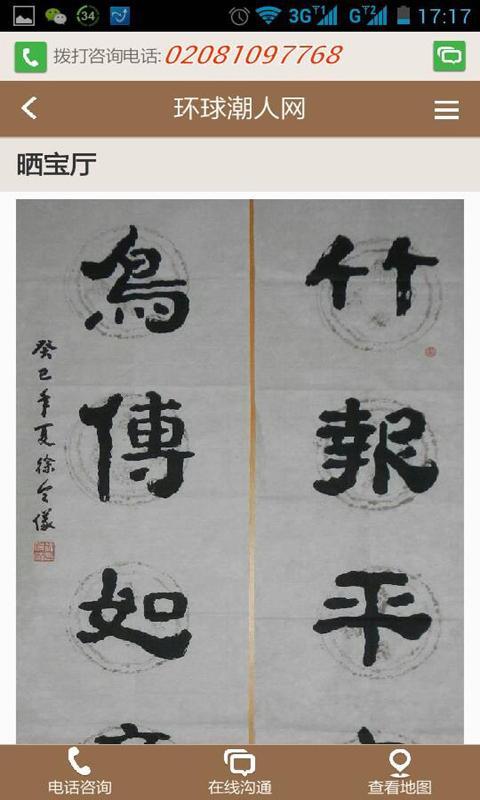 34
3G T1
G T2
17:17
拨打咨询电话: 02081097768
环球潮人网
晒宝厅
竹報平
鳥傳如
癸巳年夏徐令儀
电话咨询
在线沟通
查看地图